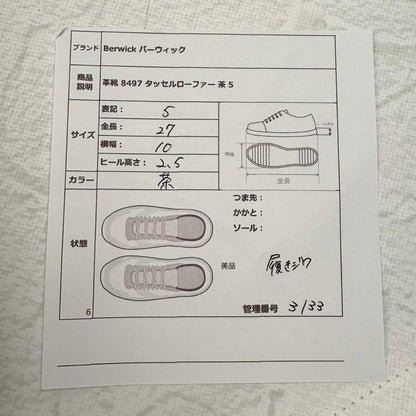 ブランド Berwick バーウィック
商品説明 革靴 8497 タッセルローファー 茶 5
サイズ
表記： 5
全長： 27
横幅： 10
ヒール高さ： 2.5
ヒール高さ
横幅
全長
カラー 茶
状態
つま先：
かかと：
ソール：
美品 履きジワ
管理番号 3133
6